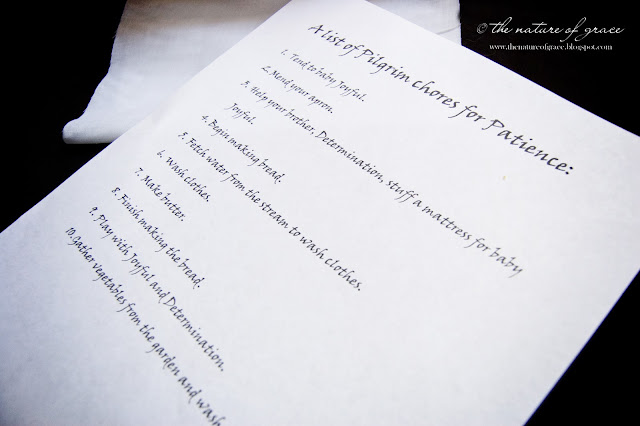 © the nature of grace
www.thenatureofgrace.blogspot.com
A list of Pilgrim Chores for Patience:
1. Tend to baby Joyful.
2. Mend your apron.
3. Help your brother, Determination, stuff a mattress for baby
Joyful.
4. Begin making bread.
5. Fetch water from the stream to wash clothes.
6. Wash clothes.
7. Make butter.
8. Finish making the bread.
9. Play with Joyful and Determination.
10. Gather vegetables from the garden and wash